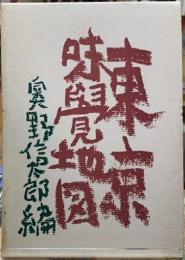 東京
味覺地図
奥野信太郎編